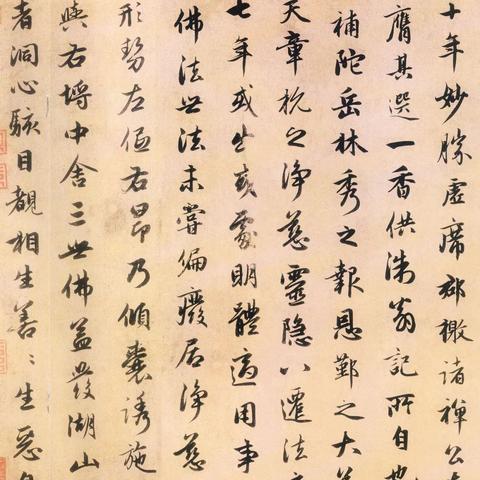 十年妙勝虛席郡檄諸禪公
膺其選一香供洙翁記所自也
補陀岳林秀之報恩鄞之大
天章杭之淨慈靈隱八遷法
七年或出或處明體適用事
佛法世法未嘗偏廢居淨慈
形勢左低右昂乃傾囊誘施
與右埒中舍三世佛益發湖山
者洞心駭目觀相生善〻生惡